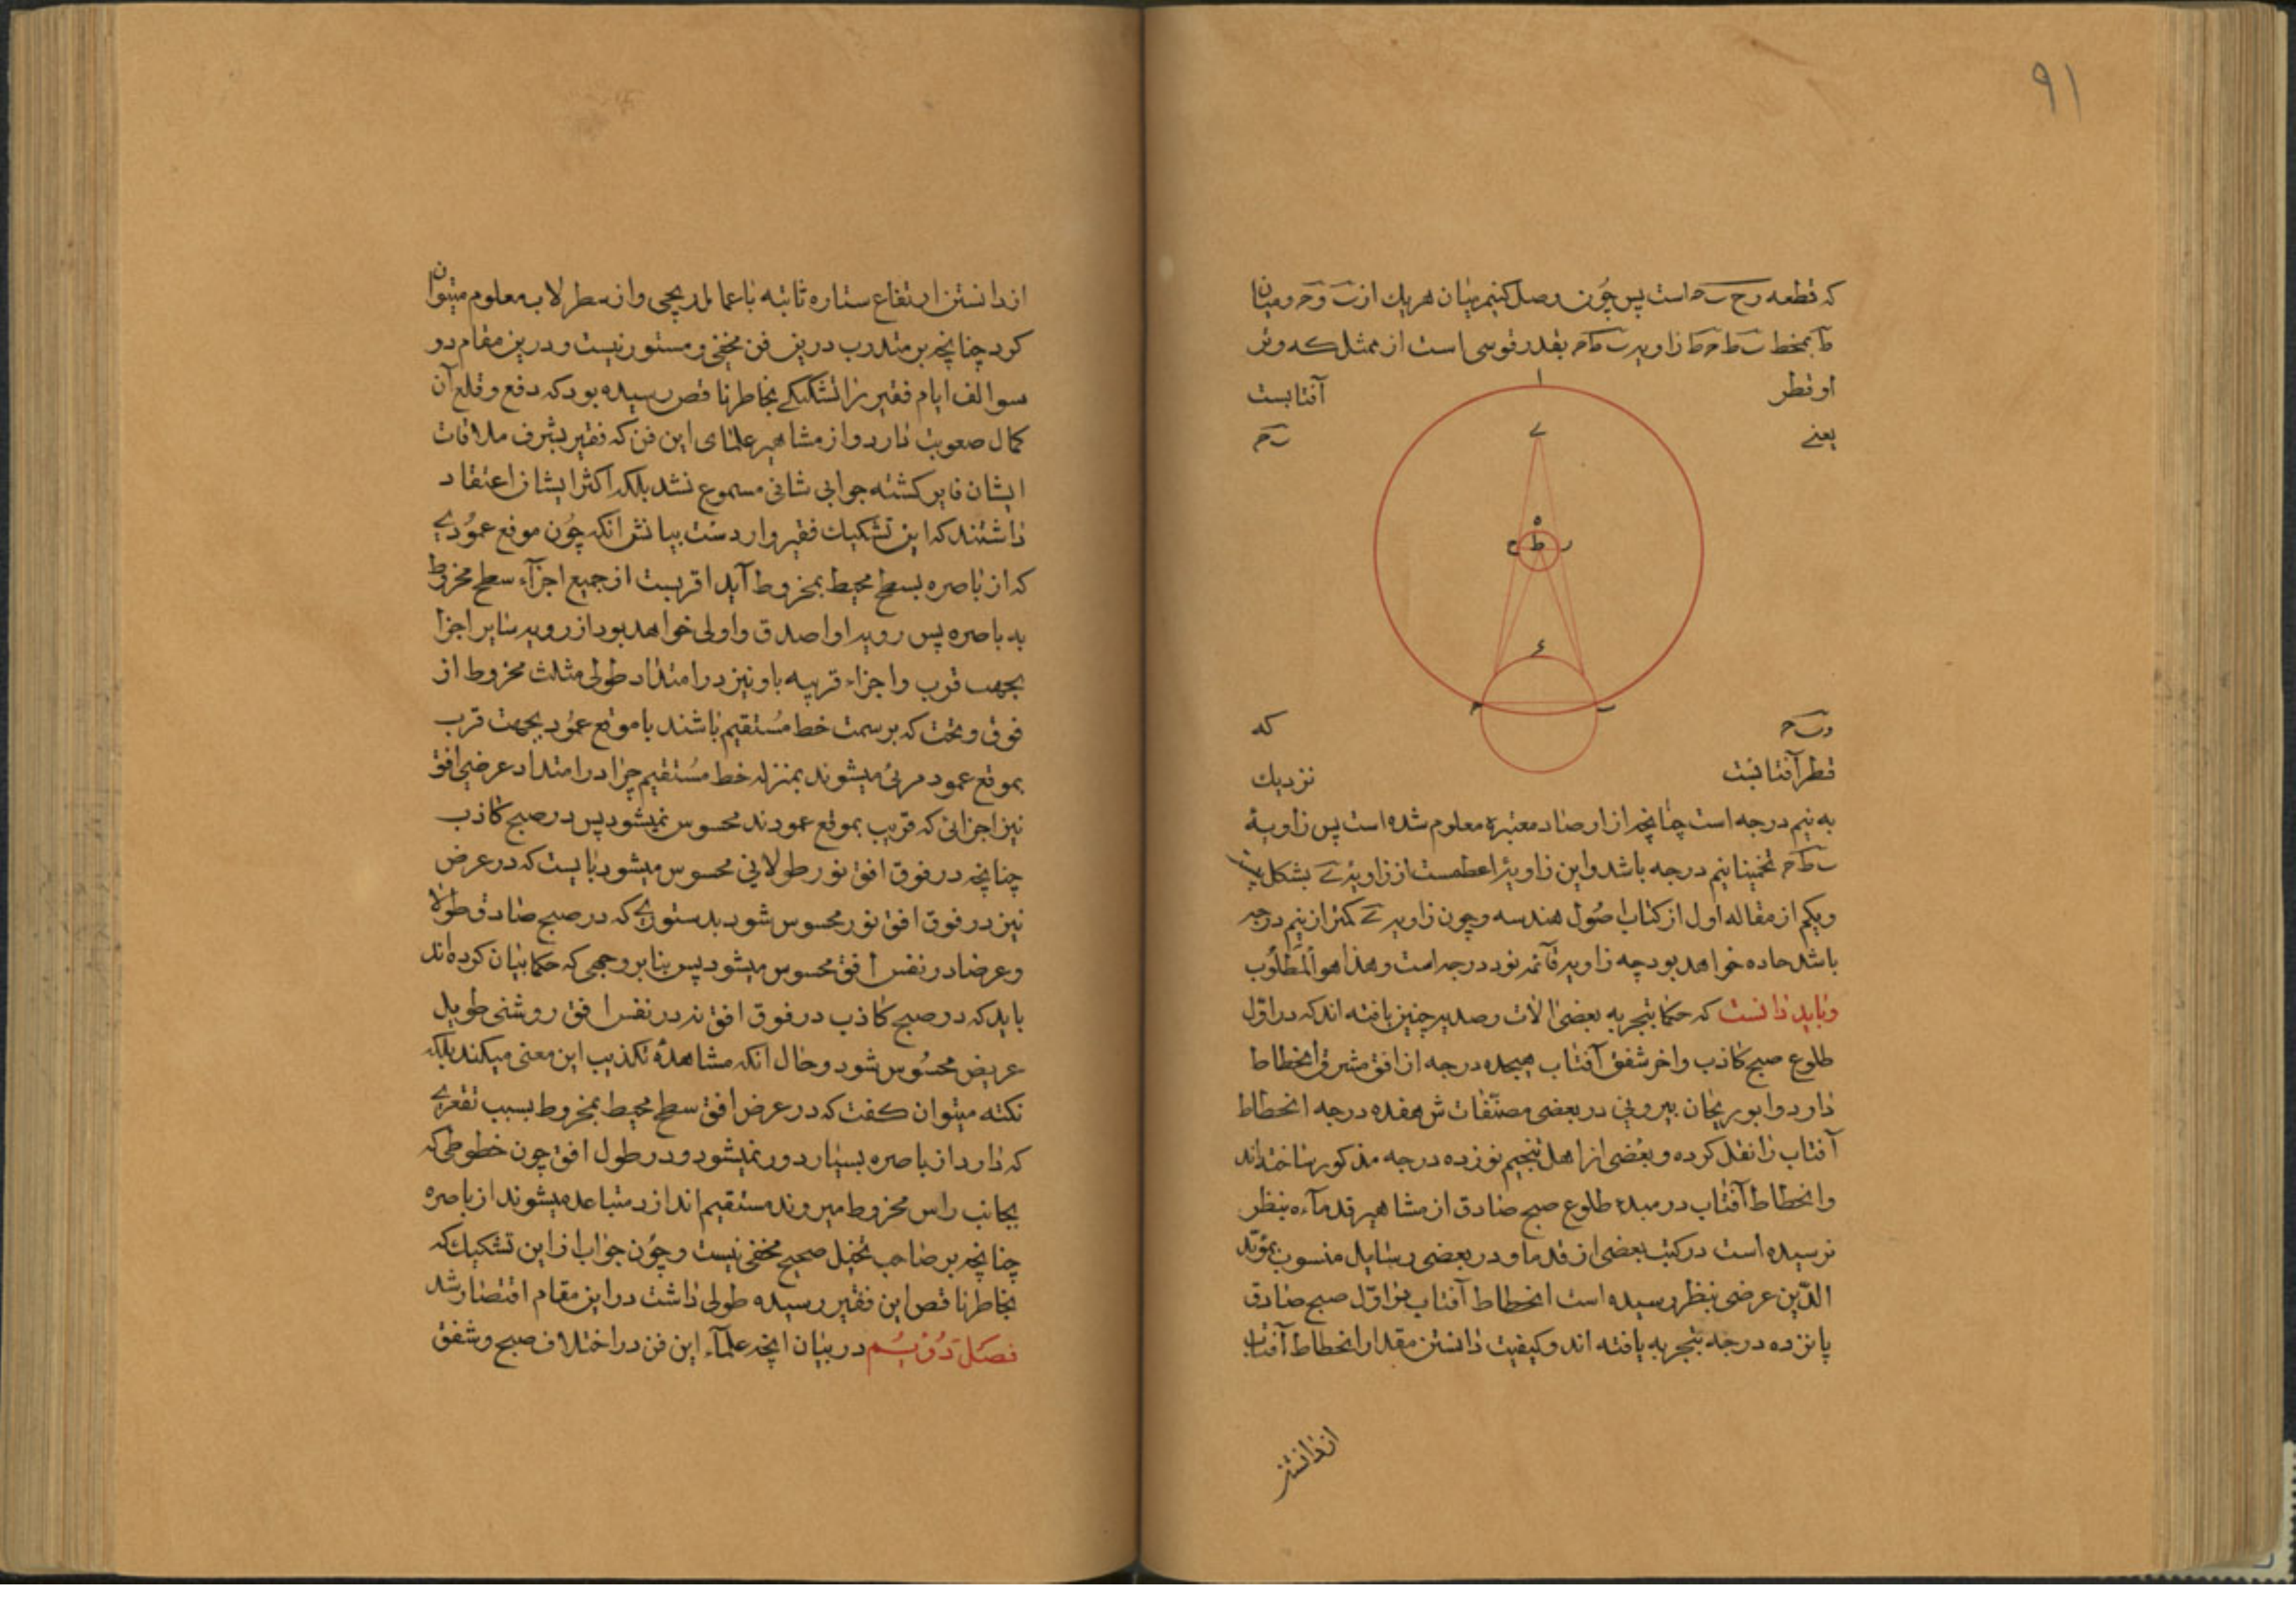 ۹۱
که قطعه رح ب‍ح است پس چون وصل کنیم میان هریك از ب و ح و میان
ط بخط ب‍ط ح‍ط زاویه ب‍ط‍ح بقدر قوسی است از ممثل که وتر
او قطر
آفتابست
یعنے
ب‍ح
ا
ے
ه
ح ط ر
ء
ح ب
و ب‍ح
که
قطر آفتابست
نزدیك
به نیم درجه است چنانچه از ارصاد معتبره معلوم شده است پس زاویهٔ
ب‍ط‍ح تخمینا نیم درجه باشد واین زاویه اعظمست از زاویه ے بشکل بیست
ویکم از مقاله اول از کتاب اصول هندسه وچون زاویه ے کمتر از نیم درجه
باشد حاده خواهد بود چه زاویه قائمه نود درجه است وهذا هو المَطلُوب
وباید دانست که حکما بتجربه بعضی الات رصدیه چنین یافته اند که در اوّل
طلوع صبح کاذب واخر شفق آفتاب هیجده درجه از افق مشرق انحطاط
دارد وابوریحان بیرونی در بعضی مصنّفاتش هفده درجه انحطاط
آفتاب را نقل کرده وبعضی از اهل تنجیم نوزده درجه مذکور ساخته اند
وانحطاط آفتاب در مبدء طلوع صبح صادق از مشاهیر قدمآء بنظر
نرسیده است در کتب بعضی از قدما ودر بعضی رسایل منسوب بمؤید
الدّین عرضی بنظر رسیده است انحطاط آفتاب در اوّل صبح صادق
پانزده درجه بتجربه یافته اند وکیفیت دانستن مقدار انحطاط آفتاب
از دانستن
از دانستن ارتفاع ستاره ثابته باعمال زیجی واز سطرلاب معلوم میتوان
کرد چنانچه بر متدرب درین فن مخفی ومستور نیست ودرین مقام در
سوالف ایام فقیر را تشکیکے بخاطر ناقص رسیده بود که دفع وقلع آن
کمال صعوبت دارد واز مشاهیر علمای این فن که فقیر بشرف ملاقات
ایشان فایز کشته جوابی شافی مسموع نشد بلکه اکثر ایشان اعتقاد
داشتند که این تشکیك فقیر واردست بیانش انکه چون موقع عمودے
که از باصره بسطح محیط بمخروط آید اقربست از جمیع اجزآء سطح مخروط
به باصره پس رویه او اصدق واولی خواهد بود از رویه سایر اجزا
بجهت قرب واجزاء قریبه باو نیز در امتداد طولی مثلث مخروط از
فوق وتحت که بر سمت خط مستقیم باشند با موقع عمود بجهت قرب
بموقع عمود مرئی میشوند بمنزله خط مستقیم چرا در امتداد عرضی افق
نیز اجزائی که قریب بموقع عمودند محسوس نمیشود پس در صبح کاذب
چنانچه در فوق افق نور طولانی محسوس میشود بایست که در عرض
نیز در فوق افق نور محسوس شود بدستورے که در صبح صادق طولا
وعرضا در نفس افق محسوس میشود پس بنا بر وجهی که حکما بیان کرده اند
باید که در صبح کاذب در فوق افق نه در نفس افق روشنی طویل
عریض محسوس شود وحال انکه مشاهده تکذیب این معنی میکند بلکه
نکته میتوان کفت که در عرض افق سطح محیط بمخروط بسبب تقعرے
که دارد از باصره بسیار دور نمیشود ودر طول افق چون خطوطی که
بجانب راس مخروط میروند مستقیم اند از د متباعد میشوند از باصره
چنانچه بر صاحب تخیل صحیح مخفی نیست وچون جواب از این تشکیك که
بخاطر ناقص این فقیر رسیده طولی داشت در این مقام اقتصار شد
فصل دویُم در بیان انچه علمآء این فن در اختلاف صبح وشفق